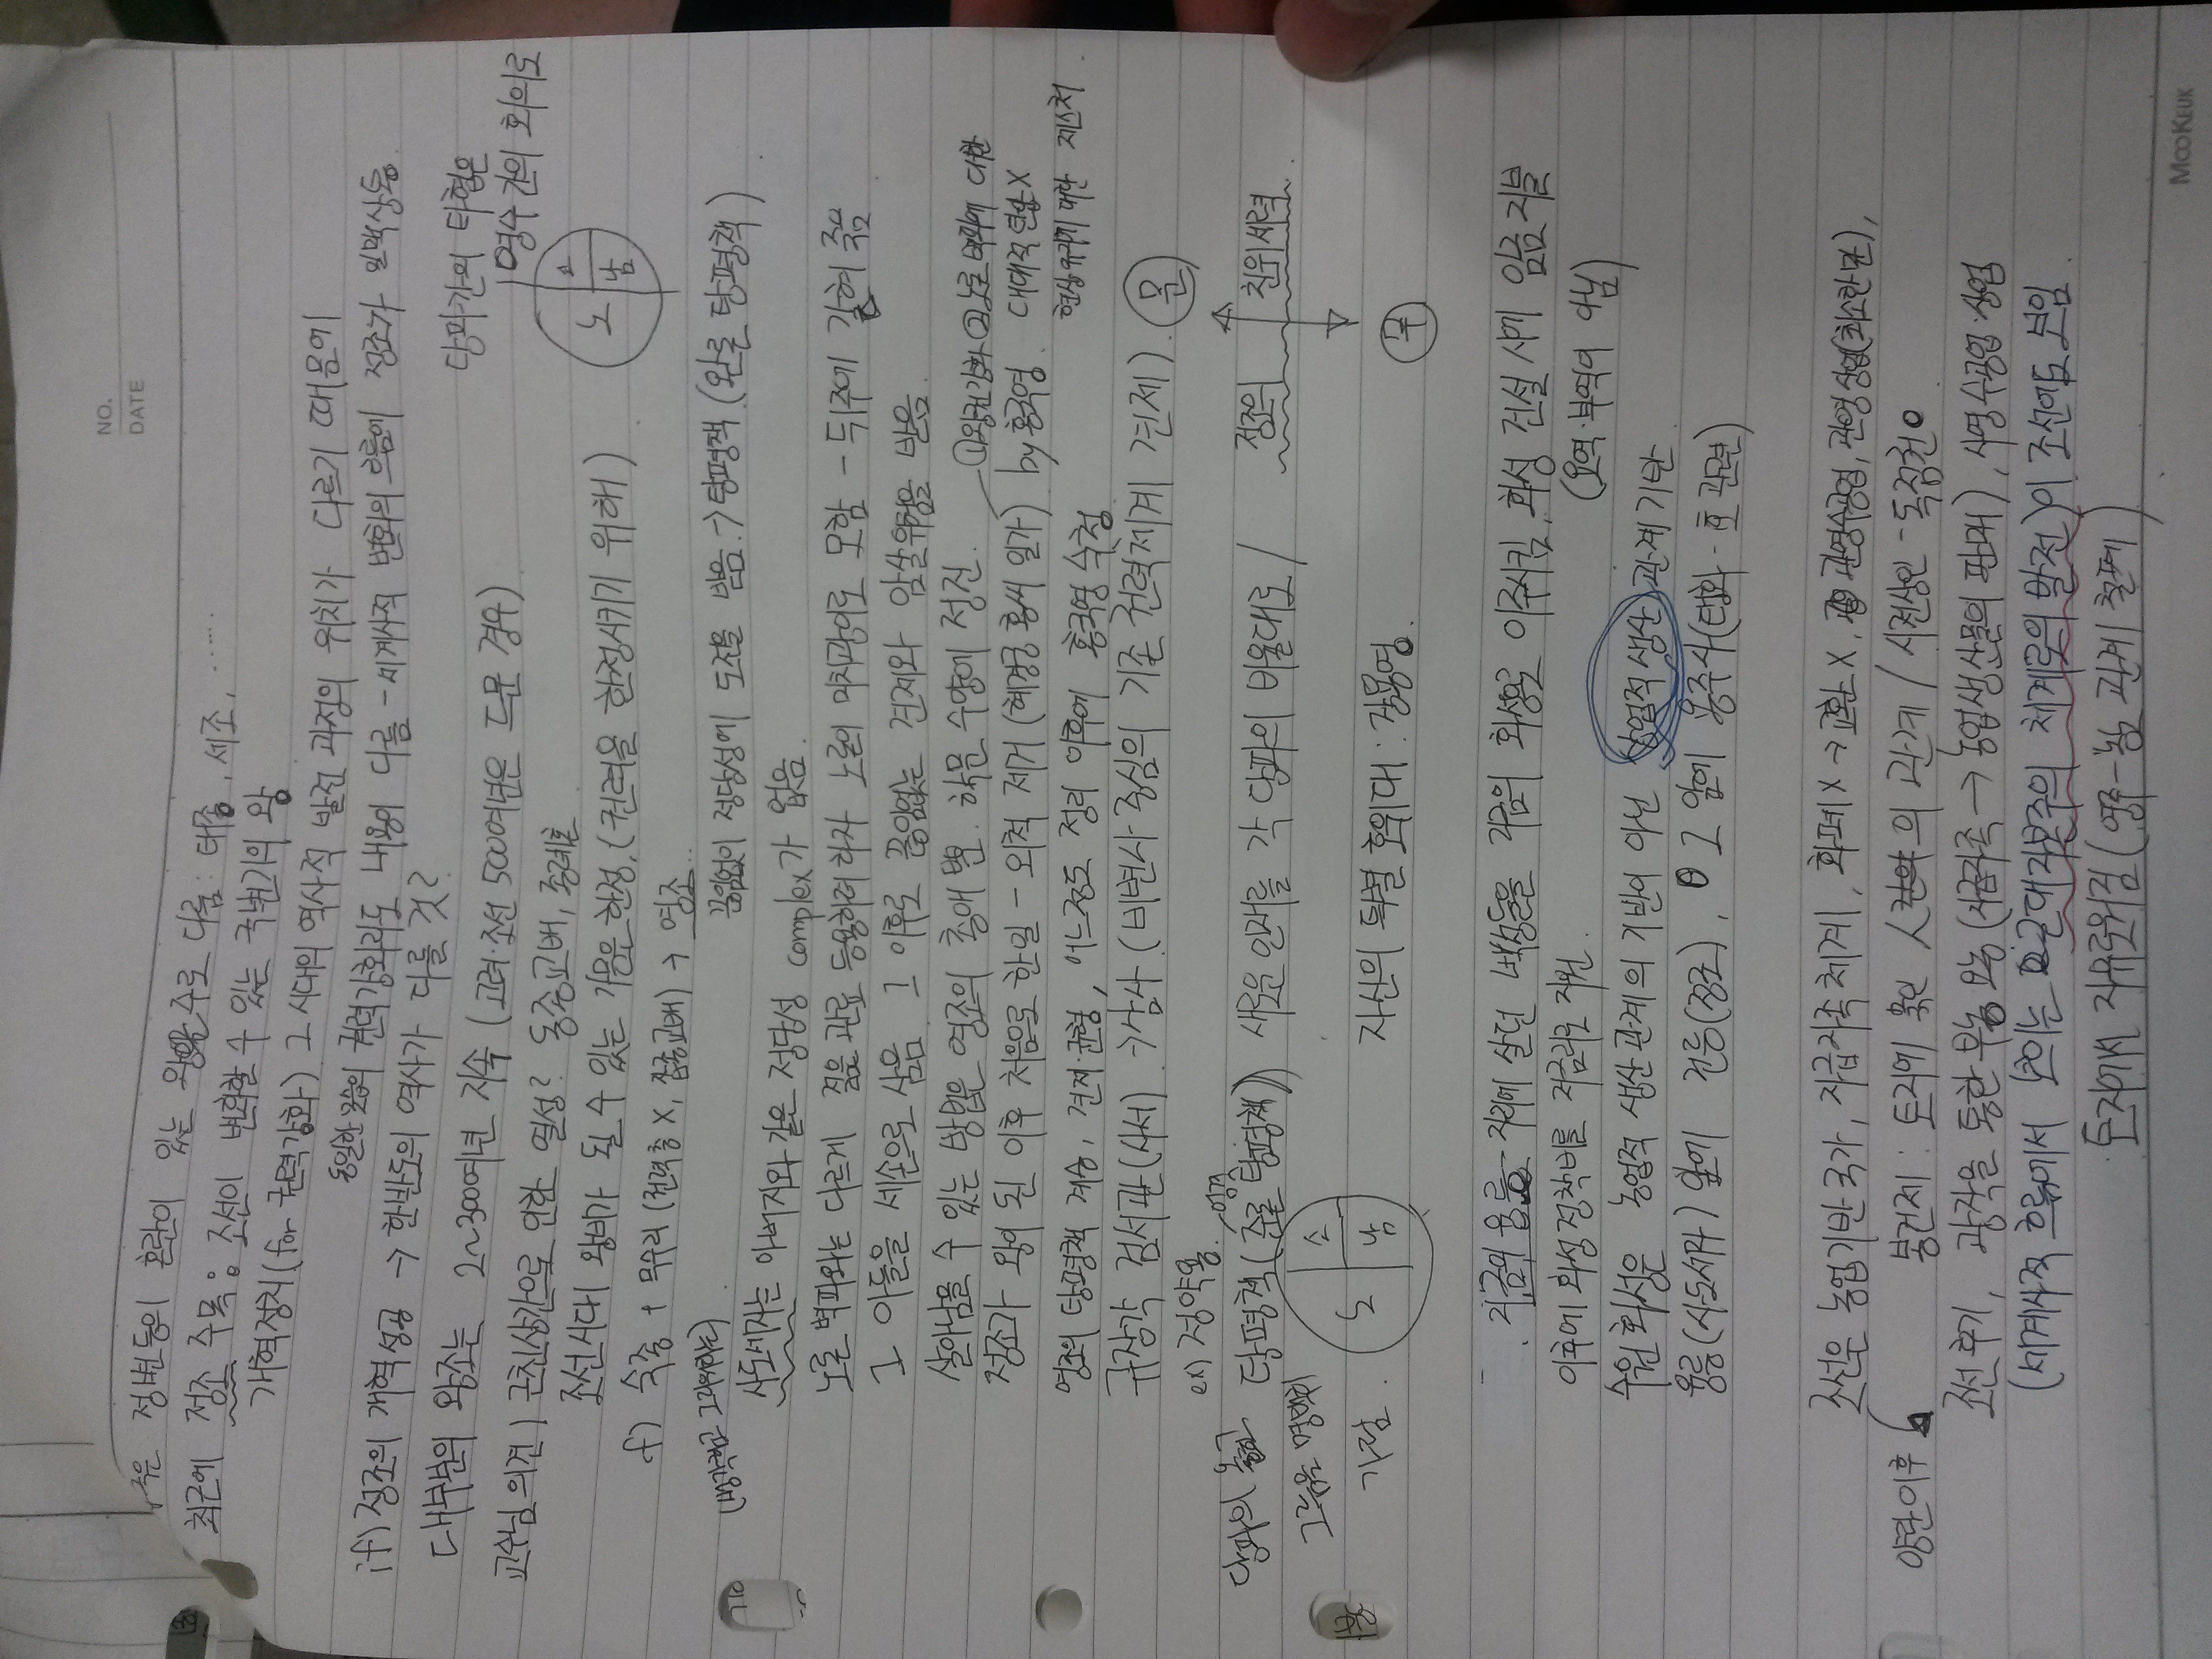 NO.
DATE
정변등의 혼란이 있는 왕을 주로 다룸 : 태종, 세조, ······
최근에 정조 주목 : 조선이 변화할 수 있는 국변기의 왕
개혁정치(for 권력강화) 그 시대의 역사적 발전 과정의 위치가 다르기 때문에
동일한 모습의 권력강화라도 내용이 다름 - 세계사적 변화의 흐름에 정조가 일맥상통
if) 정조의 개혁성공 → 한반도의 역사가 다를 것?
대부분의 왕조는 2~300여년 지속 (고려·조선 500여년은 드문 경우)
당파간의 타협은
영수간의 회의로
노 소 남
교수님 의견) 근친상간으로 인한 열성? 동종교배, 종례혼
조선시대 왕비가 될 수 있는 가문은 한정. (권력을 한정시키기 위해)
f) 숙종 + 무수리 (권력층 X, 잡종교배) → 영조..
(생각하고 그리워하는)
끊임없이 정당성에 도전을 받음 → 탕평책 (완론 탕평책)
사도세자는 아버지와 같은 정당성 complex가 없음.
노론 벽파와는 다르게 젊은 관료 등용하려 하자 노론이 미치광이로 모함 - 뒤주에 갇혀 죽음
그 아들을 세손으로 삼음. 그 이후로 끊임없는 견제와 암살위험을 받음.
살아남을 수 있는 방법은 영조의 총애 뿐. 학문 수양에 정진.
①왕권강화 ②노론 벽파에 대한
정조가 왕이 된 이후 처음으로 한일 - 외척 제거 (혜경궁 홍씨 일가) by 홍국영
대대적 X
현상유지에 대한 제스처
영조의 탕평책 계승, 견제·균형, 어느정도 정리 이후에 홍국영 숙청
규장각 검서관(사서) → 감사 (비변사 중심의 기존 권력체계 견제)
문
ex) 정약용
당파의 옳고
그름을 명백히
가림.
엄격
탕평책 (준론 탕평책) 새로운 인재를 각 당파의 비율대로 /
정조의 친위세력
노 소 남
자신의 특별 호위대 : 장용영.
무
지금의 융릉 자리에 살던 백성들을 지금의 화성으로 이주시킴, 화성 건설 시에 임금 지불
(요역·부역이 아님)
이후에 화성 정착비를 저금리로 지원.
수원 화성은 농업적 생산관계의 기반이 아닌 상업적 생산 관계 기반.
융릉(사도세자) 앞에 건릉(정조), 그 앞에 용주사(탱화 - 효 관련)
조선은 농업기반 국가, 자급자족 체계, 화폐X → 교환X, 관영수공업, 관영상업(최소한만),
양란이후
봉건제 : 토지에 묶인 人 의 관계 / 시전상인 - 독점권
조선 후기, 광작을 통한 부농 (자급자족 → 농업생산물의 판매), 사영수공업·상업
(세계사적 흐름에서 보이는 근대자본주의 체계로의 발전)이 조선에도 보임.
토지에서 자유로워짐 (영주-농노 관계 철폐)
MOOKEUK